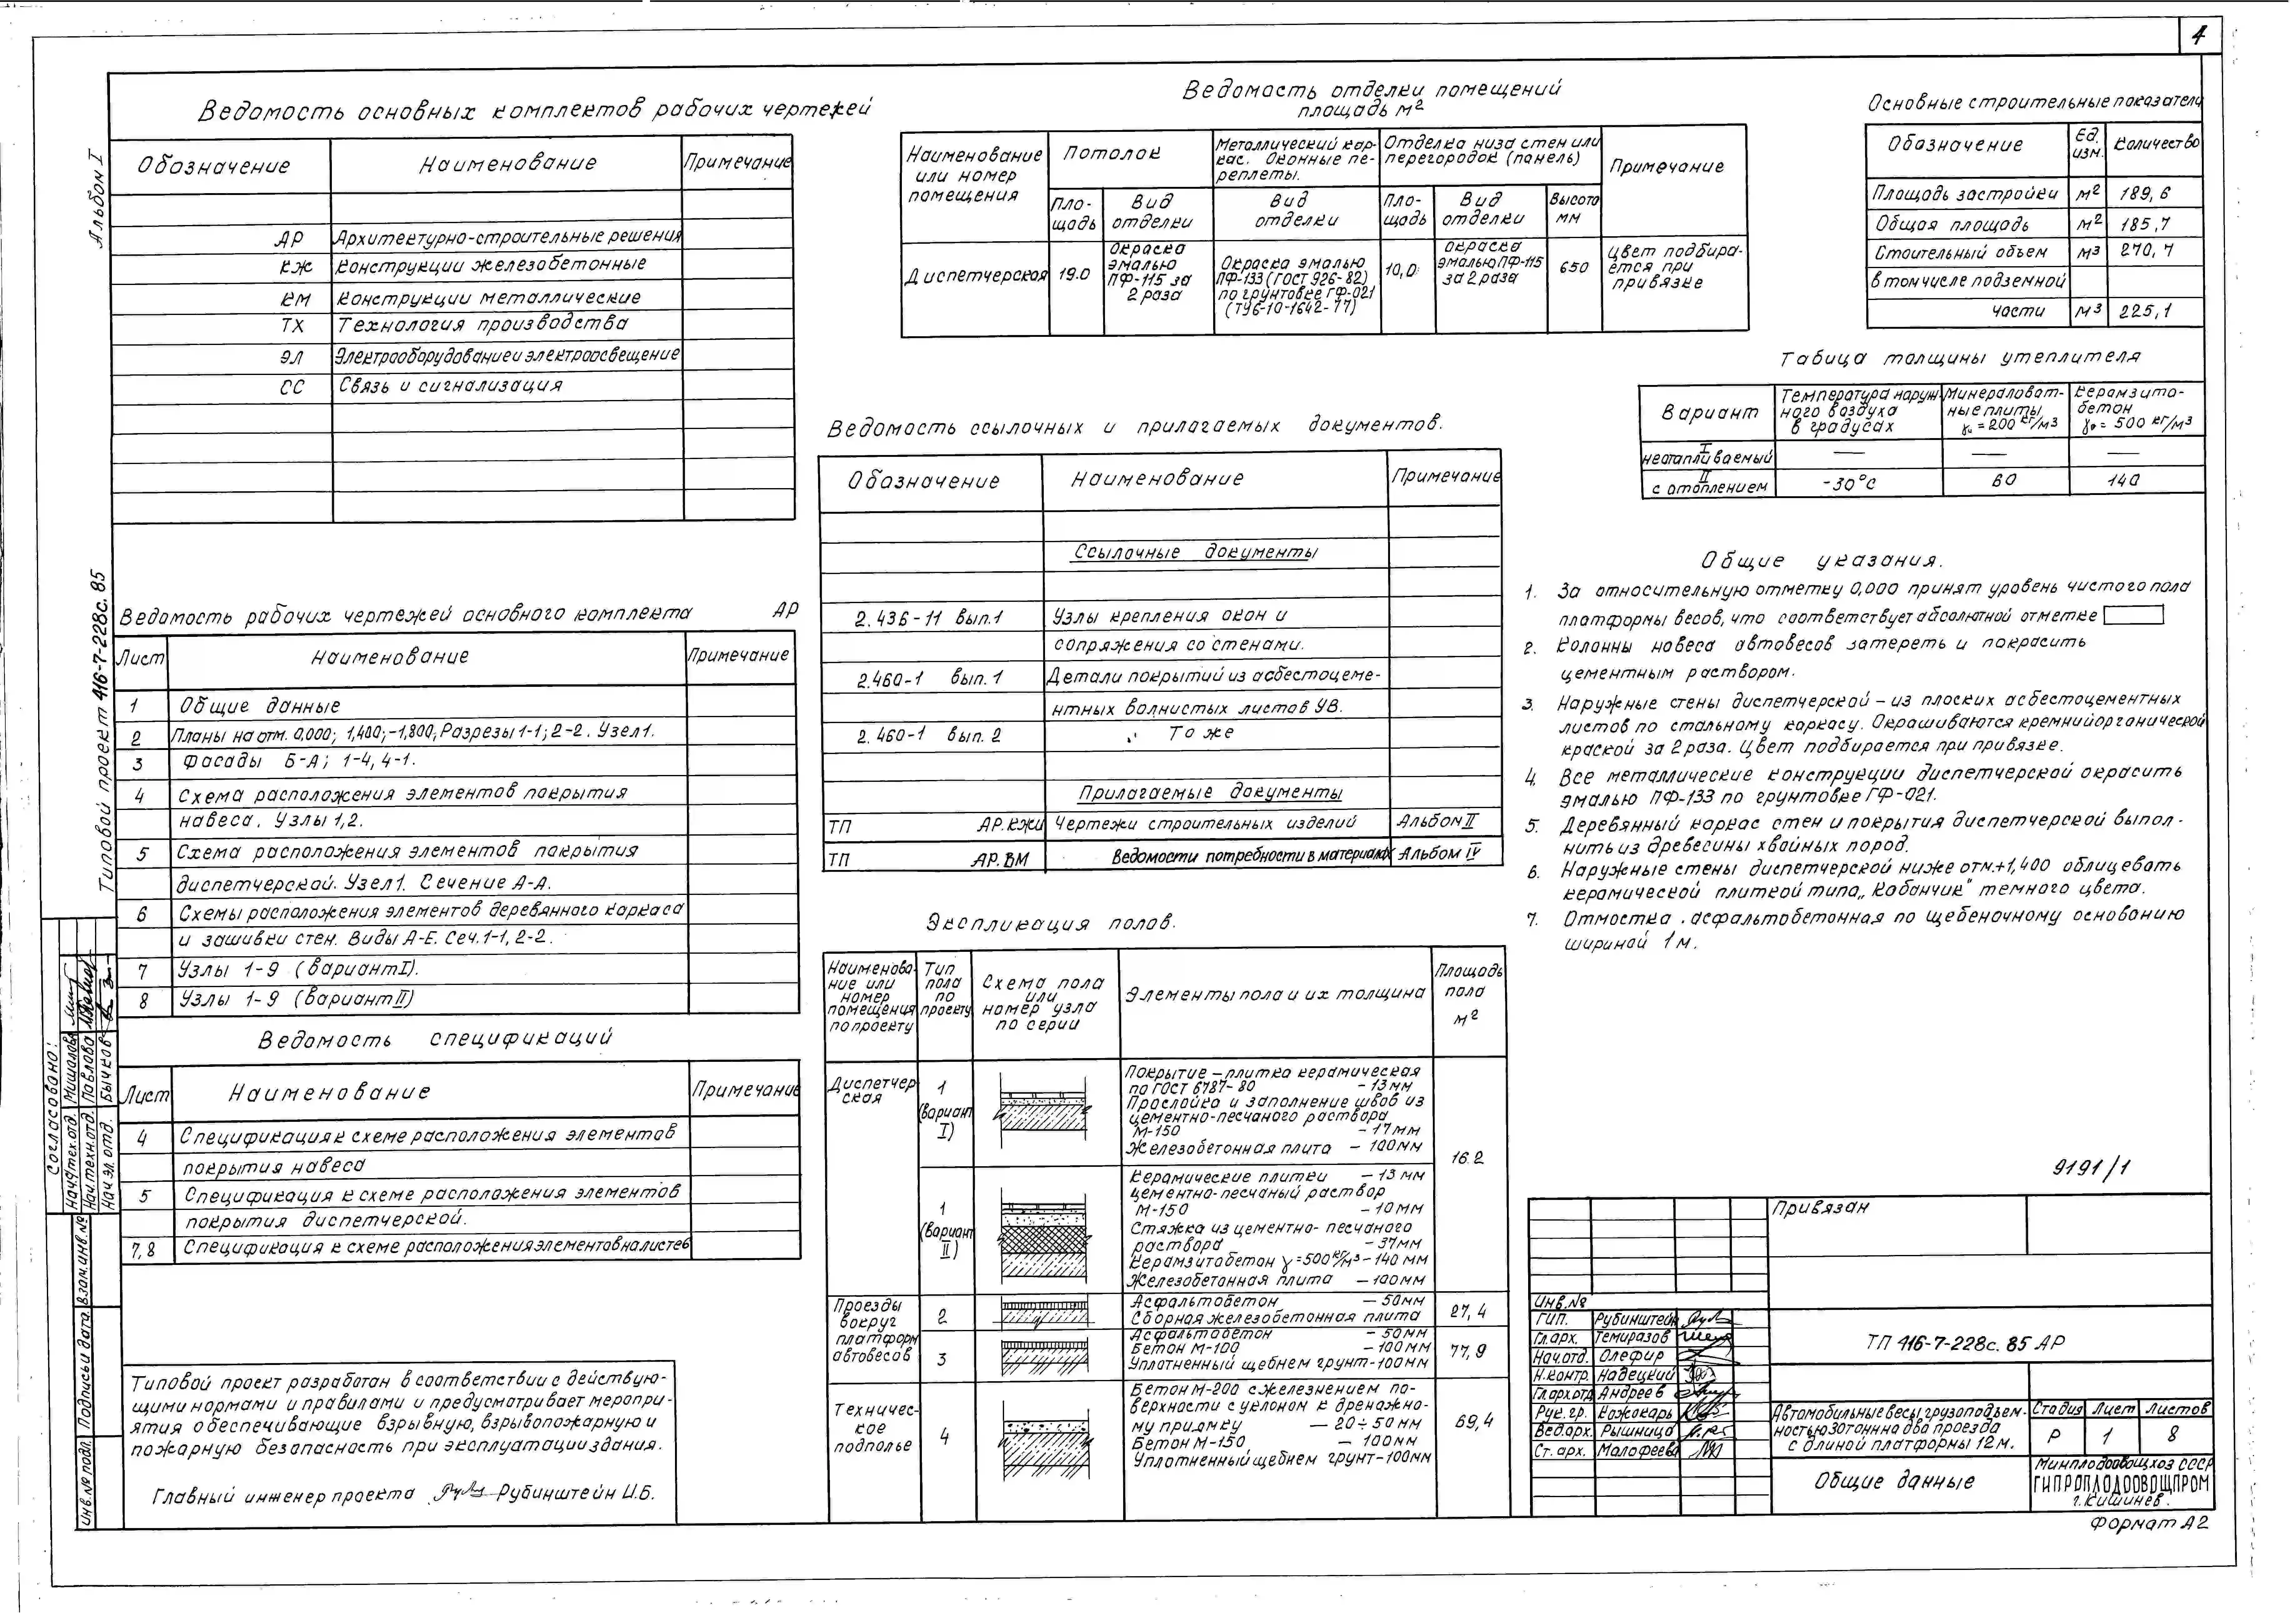 4
Альбом I
Типовой проект 416-7-228с.85
Ведомость основных комплектов рабочих чертежей
Обозначение Наименование Примечание
АР Архитектурно-строительные решения
КЖ Конструкции железобетонные
КМ Конструкции металлические
ТХ Технология производства
ЭЛ Электрооборудование и электроосвещение
СС Связь и сигнализация
Ведомость рабочих чертежей основного комплекта АР
Лист Наименование Примечание
1 Общие данные
2 Планы на отм. 0,000; 1,400; -1,800; Разрезы 1-1; 2-2. Узел 1.
3 Фасады Б-А; 1-4, 4-1.
4 Схема расположения элементов покрытия
навеса. Узлы 1,2.
5 Схема расположения элементов покрытия
диспетчерской. Узел 1. Сечение А-А.
6 Схемы расположения элементов деревянного каркаса
и зашивки стен. Виды А-Е. Сеч. 1-1, 2-2.
7 Узлы 1-9 (вариант I).
8 Узлы 1-9 (вариант II)
Ведомость спецификаций
Лист Наименование Примечание
4 Спецификация к схеме расположения элементов
покрытия навеса
5 Спецификация к схеме расположения элементов
покрытия диспетчерской.
7,8 Спецификация к схеме расположения элементов на листе 6
Типовой проект разработан в соответствии с действую-
щими нормами и правилами и предусматривает меропри-
ятия обеспечивающие взрывную, взрывопожарную и
пожарную безопасность при эксплуатации здания.
Главный инженер проекта Рубинштейн И.Б.
Согласовано:
Нач. тех. отд. Мишалова
Нач. техн. отд. Павлова
Нач. эл. отд. Бычков
Взам. инв. №
Подпись и дата
Инв. № подл.
Ведомость отделки помещений
площадь м²
Наименование или номер помещения Потолок Металлический кар-кас. Оконные пе-реплеты. Отделка низа стен или перегородок (панель) Примечание
Пло-щадь Вид отделки Вид отделки Пло-щадь Вид отделки Высота мм
Диспетчерская 19.0 Окраска эмалью ПФ-115 за 2 раза Окраска эмалью ПФ-133 (ГОСТ 926-82) по грунтовке ГФ-021 (ТУ6-10-1642-77) 10,0 окраска эмалью ПФ-115 за 2 раза 650 Цвет подбира-ется при привязке
Ведомость ссылочных и прилагаемых документов.
Обозначение Наименование Примечание
Ссылочные документы
2.436-11 вып.1 Узлы крепления окон и
сопряжения со стенами.
2.460-1 вып.1 Детали покрытий из асбестоцеме-
нтных волнистых листов УВ.
2.460-1 вып.2 То же
Прилагаемые документы
ТП АР.КЖИ Чертежи строительных изделий Альбом II
ТП АР.ВМ Ведомости потребности в материалах Альбом IV
Экспликация полов.
Наименова-ние или номер помещения по проекту Тип пола по проекту Схема пола или номер узла по серии Элементы пола и их толщина Площадь пола м²
Диспетчер
ская
1 (вариант I)
Покрытие – плитка керамическая
по ГОСТ 6787-80 – 13мм
Прослойка и заполнение швов из
цементно-песчаного раствора
М-150 – 17мм
Железобетонная плита – 100мм
16.2
1 (вариант II)
Керамические плитки – 13 мм
Цементно-песчаный раствор
М-150 – 10мм
Стяжка из цементно-песчаного
раствора – 37мм
Керамзитобетон γ=500 кг/м³ – 140 мм
Железобетонная плита – 100мм
Проезды
вокруг
платформ
автовесов
2 Асфальтобетон – 50мм
Сборная железобетонная плита
27,4
3 Асфальтобетон – 50мм
Бетон М-100 – 100мм
Уплотненный щебнем грунт – 100мм
77,9
Техничес-
кое
подполье
4 Бетон М-200 с железнением по-
верхности с уклоном к дренажно-
му приямку – 20÷50мм
Бетон М-150 – 100мм
Уплотненный щебнем грунт – 100мм
69,4
Основные строительные показатели
Обозначение Ед. изм. Количество
Площадь застройки м² 189,6
Общая площадь м² 185,7
Стоительный объем м³ 270,7
в том числе подземной
части м³ 225,1
Табица толщины утеплителя
Вариант Температура наруж-ного воздуха в градусах Минераловат-ные плиты γ=200 кг/м3 Керамзито-бетон γ=500 кг/м3
I неотапливаемый — — —
II с отоплением -30°С 60 140
Общие указания.
1. За относительную отметку 0,000 принят уровень чистого пола
платформы весов, что соответствует абсолютной отметке
2. Колонны навеса автовесов затереть и покрасить
цементным раствором.
3. Наружные стены диспетчерской – из плоских асбестоцементных
листов по стальному каркасу. Окрашиваются кремнийорганической
краской за 2 раза. Цвет подбирается при привязке.
4. Все металлические конструкции диспетчерской окрасить
эмалью ПФ-133 по грунтовке ГФ-021.
5. Деревянный каркас стен и покрытия диспетчерской выпол-
нить из древесины хвойных пород.
6. Наружные стены диспетчерской ниже отм.+1,400 облицевать
керамической плиткой типа „Кабанчик" темного цвета.
7. Отмостка . асфальтобетонная по щебеночному основанию
шириной 1м.
9191/1
Привязан
Инв.№
ГИП. Рубинштейн
Гл.арх. Темиразов
Нач.отд. Олефир
Н.контр. Надецкий
Гл.арх.отд Андреев
Рук.гр. Кожокарь
Вед.арх. Рышница
Ст.арх. Малофеева
ТП 416-7-228с.85 АР
Автомобильные весы грузоподъем-
ностью 30 тонн на два проезда
с длиной платформы 12м.
Стадия Лист Листов
Р 1 8
Общие данные
Минплодоовощхоз СССР
ГИПРОПЛОДООВОЩПРОМ
г.Кишинев.
Формат А2